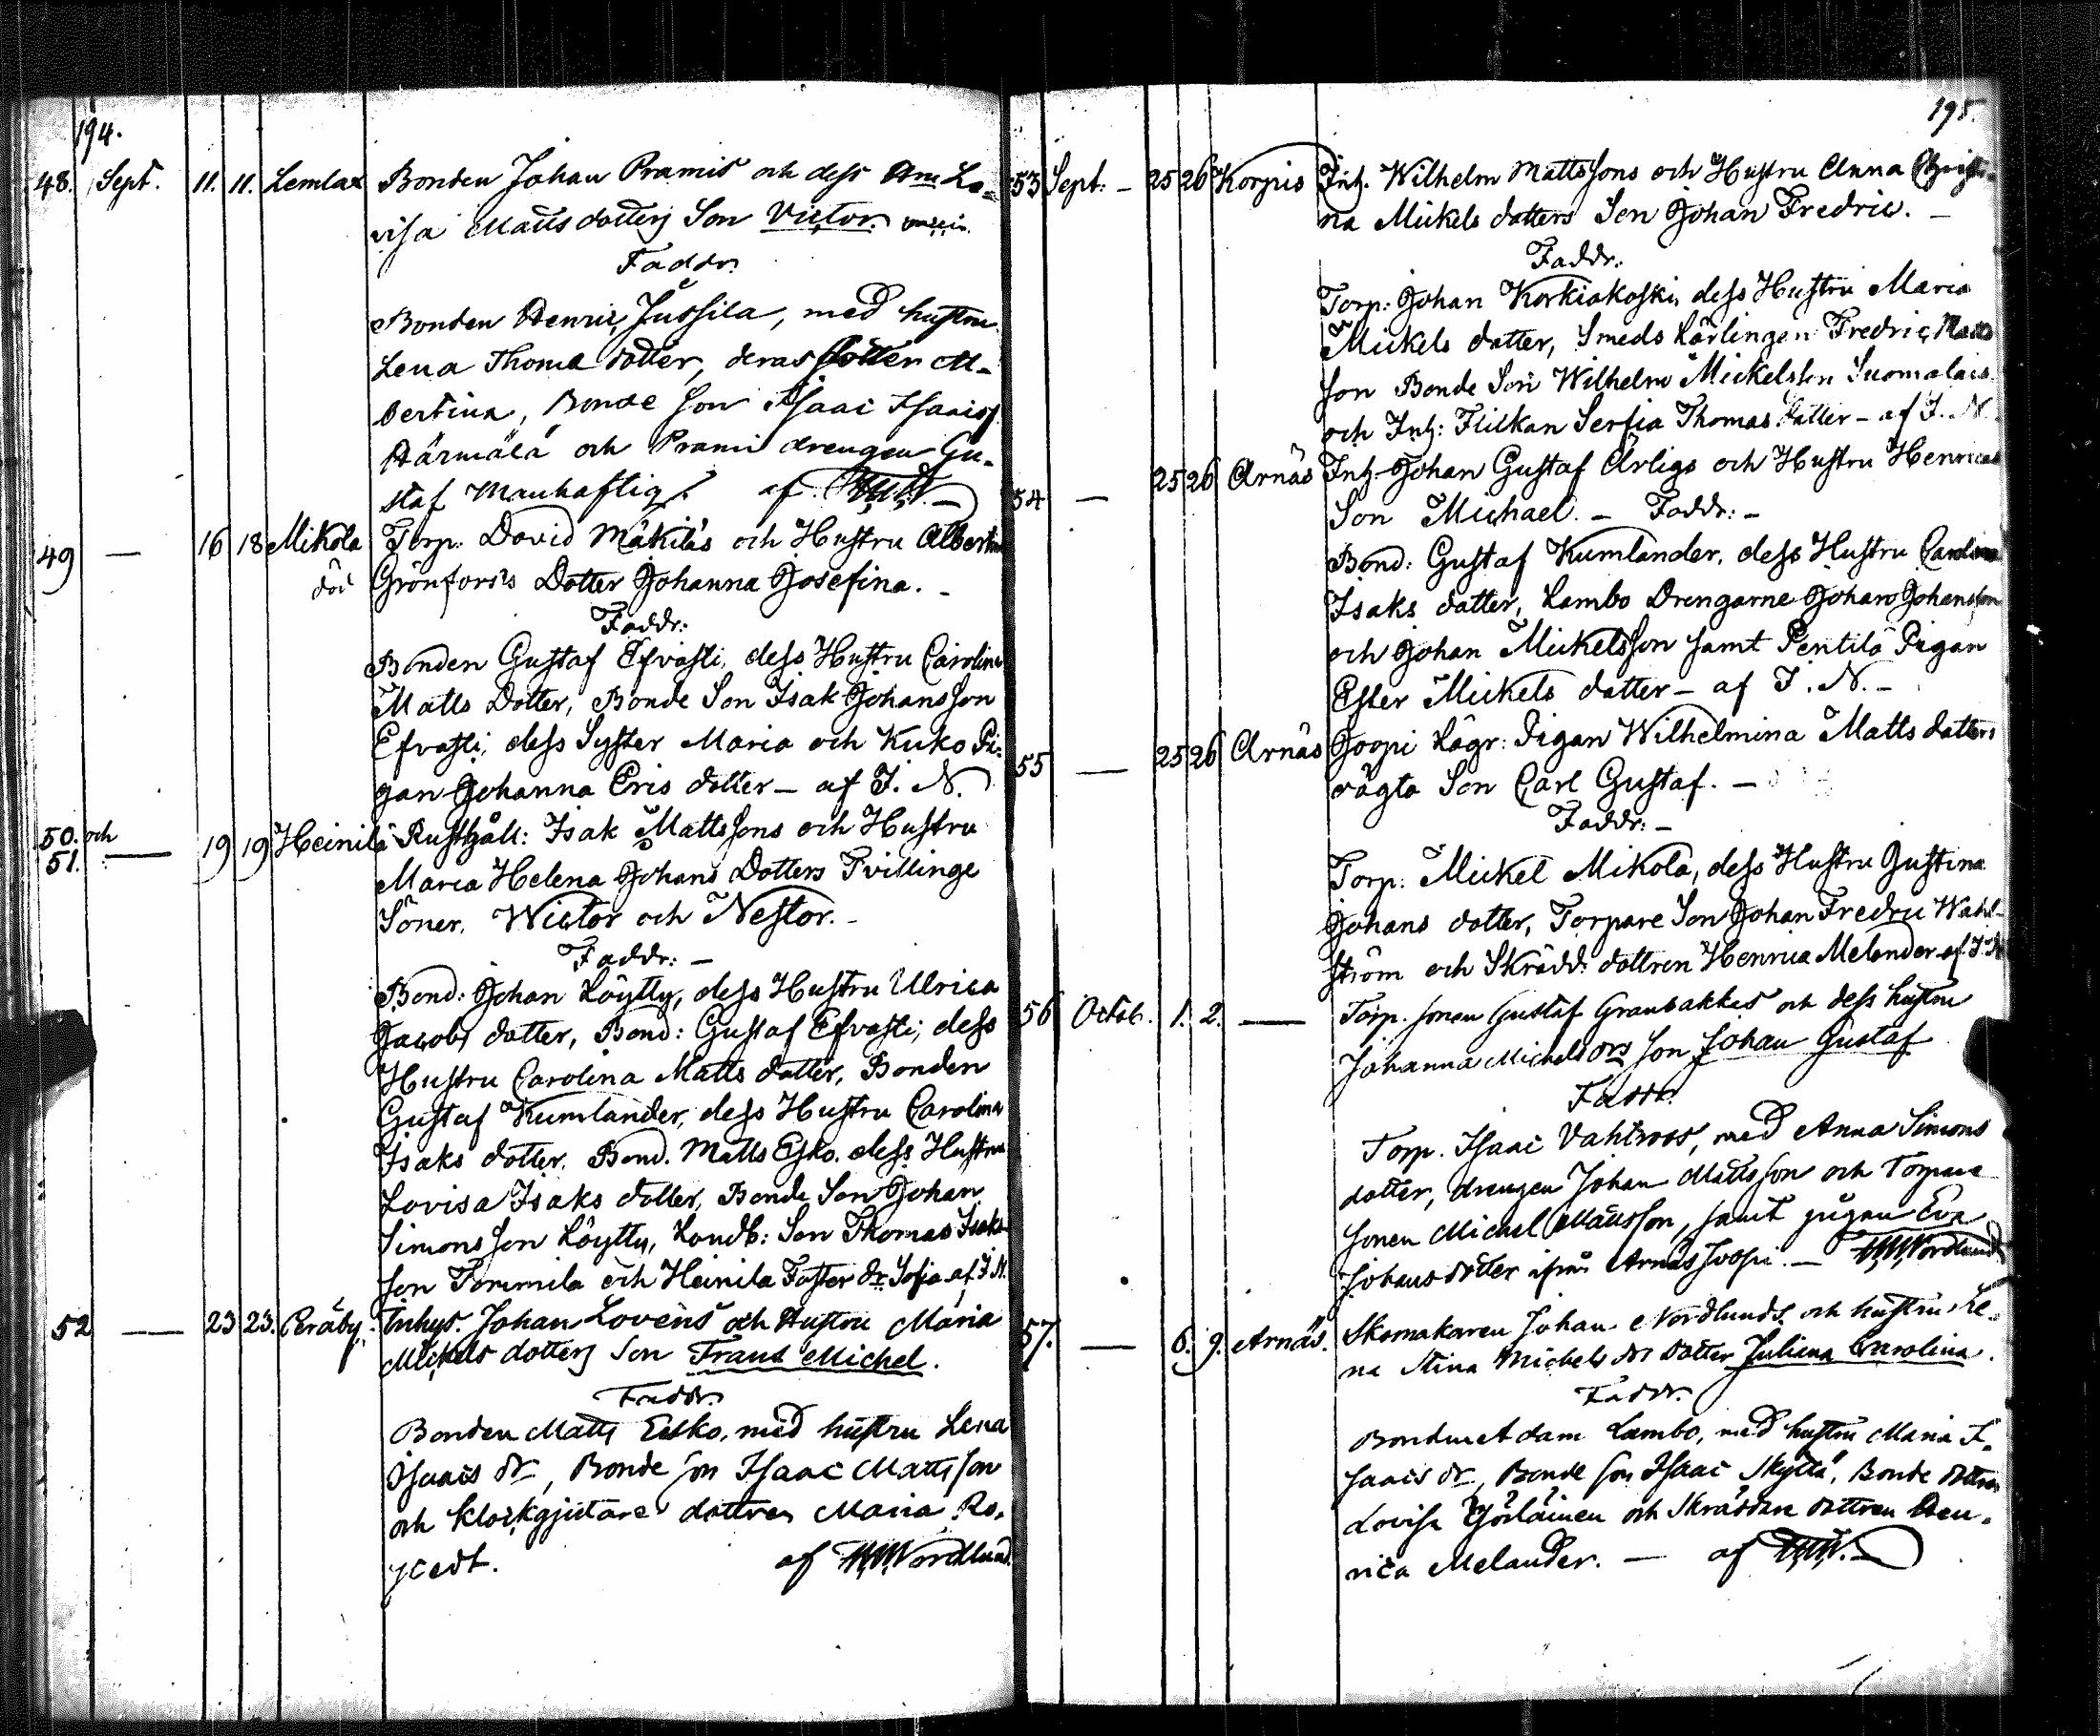 194.
48. Sept. 11. 11. Lemlax Bonden Johan Pramis och dess Ann Lo-
visa Matts dotters Son Victor.
Faddr.
Bonden Henric Jussila, med hustru
Lena Thomæ dotter, deras dotter Al-
bertina, Bonde Son Isaac Isaacss
Härmälä och Prami drengen Gu-
staf Manhaftig. af
49 — 16 18 Mikola Torp. David Mäkiläs och Hustru Albertina
död Grönfors's Dotter Johanna Josefina. -
Faddr:
Bonden Gustaf Efvasti, dess Hustru Carolina
Matts Dotter, Bonde Son Isak Johansson
Efvasti, dess Syster Maria och Kuko Pi-
gan Johanna Eris dotter - af J. N.
50. och
51. — 19 19 Heinilä Rusthåll: Isak Mattssons och Hustru
Maria Helena Johans Dotters Tvillinge
Söner, Wictor och Nestor. -
Faddr: -
Bond: Johan Köylly, dess Hustru Ulrica
Jacobs dotter, Bond: Gustaf Efvasti, dess
Hustru Carolina Matts dotter, Bonden
Gustaf Kumlander, dess Hustru Carolina
Isaks dotter, Bond. Matts Esko. dess Hustru
Lovisa Isaks dotter, Bonde Son Johan
Simonsson Köylly, Landb: Son Thomas Isaks
son Tommila och Heinila Foster dr Sofia af J. N.
52 — 23 23. Peräby. Inhys. Johan Lovéns och Hustru Maria
Michels dotters Son Frans Michel.
Faddr.
Bonden Matts Esko, med hustru Lena
Isaacs dr, Bonde Son Isaac Matts son
och Klockgjutare dottren Maria Ro-
stedt. af Nordlund.
195.
53 Sept: - 25 26 Korpis Inh. Wilhelm Mattssons och Hustru Anna Christi-
na Mickels dotters Son Johan Fredric. -
Faddr:
Torp: Johan Korkiakoski, dess Hustru Maria
Mickels dotter, Smeds Lärlingen Fredric Matts
son Bonde Son Wilhelm Mickelsson Suomalais
och Inh: Flickan Serfia Thomas dotter - af J. N.
54 — 25 26 Arnäs Inh. Johan Gustaf Ärligs och Hustru Henricas
Son Michael. - Faddr: -
Bond: Gustaf Kumlander, dess Hustru Carolina
Isaks dotter, Lambo Drengarne Johan Johansson
och Johan Mickelsson samt Pentilä Pigan
Ester Mickels dotter - af J. N. -
55 — 25 26 Arnäs Joopi Lägr: Pigan Wilhelmina Matts dotters
oägta Son Carl Gustaf. -
Faddr: -
Torp: Mickel Mikola, dess Hustru Gustina
Johans dotter, Torpare Son Johan Fredric Wahl-
ström och Skrädd: dottren Henrica Melander af J. N
56 Octob. 1. 2. — Torp. sonen Gustaf Granbakkas och dess hustru
Johanna Michels drs Son Johan Gustaf
Faddr.
Torp. Isaac Vahlroos, med Anna Simons
dotter, drengen Johan Mattsson och Torpare
sonen Michel Mattsson, samt pigan Eva
Johans dotter ifrån Arnäs Joopi. - Nordlund
57. — 6. 9. Arnäs. Skomakaren Johan Nordlunds och hustru Le-
na Stina Michels drs Dotter Juliana Carolina.
Faddr.
Bonden Adam Lambo, med hustru Maria I-
saacs dr, Bonde Son Isaac Skyttä, Bonde dottren
Lovisa Yöläinen och Skräddare dottren Hen-
rica Melander. - af